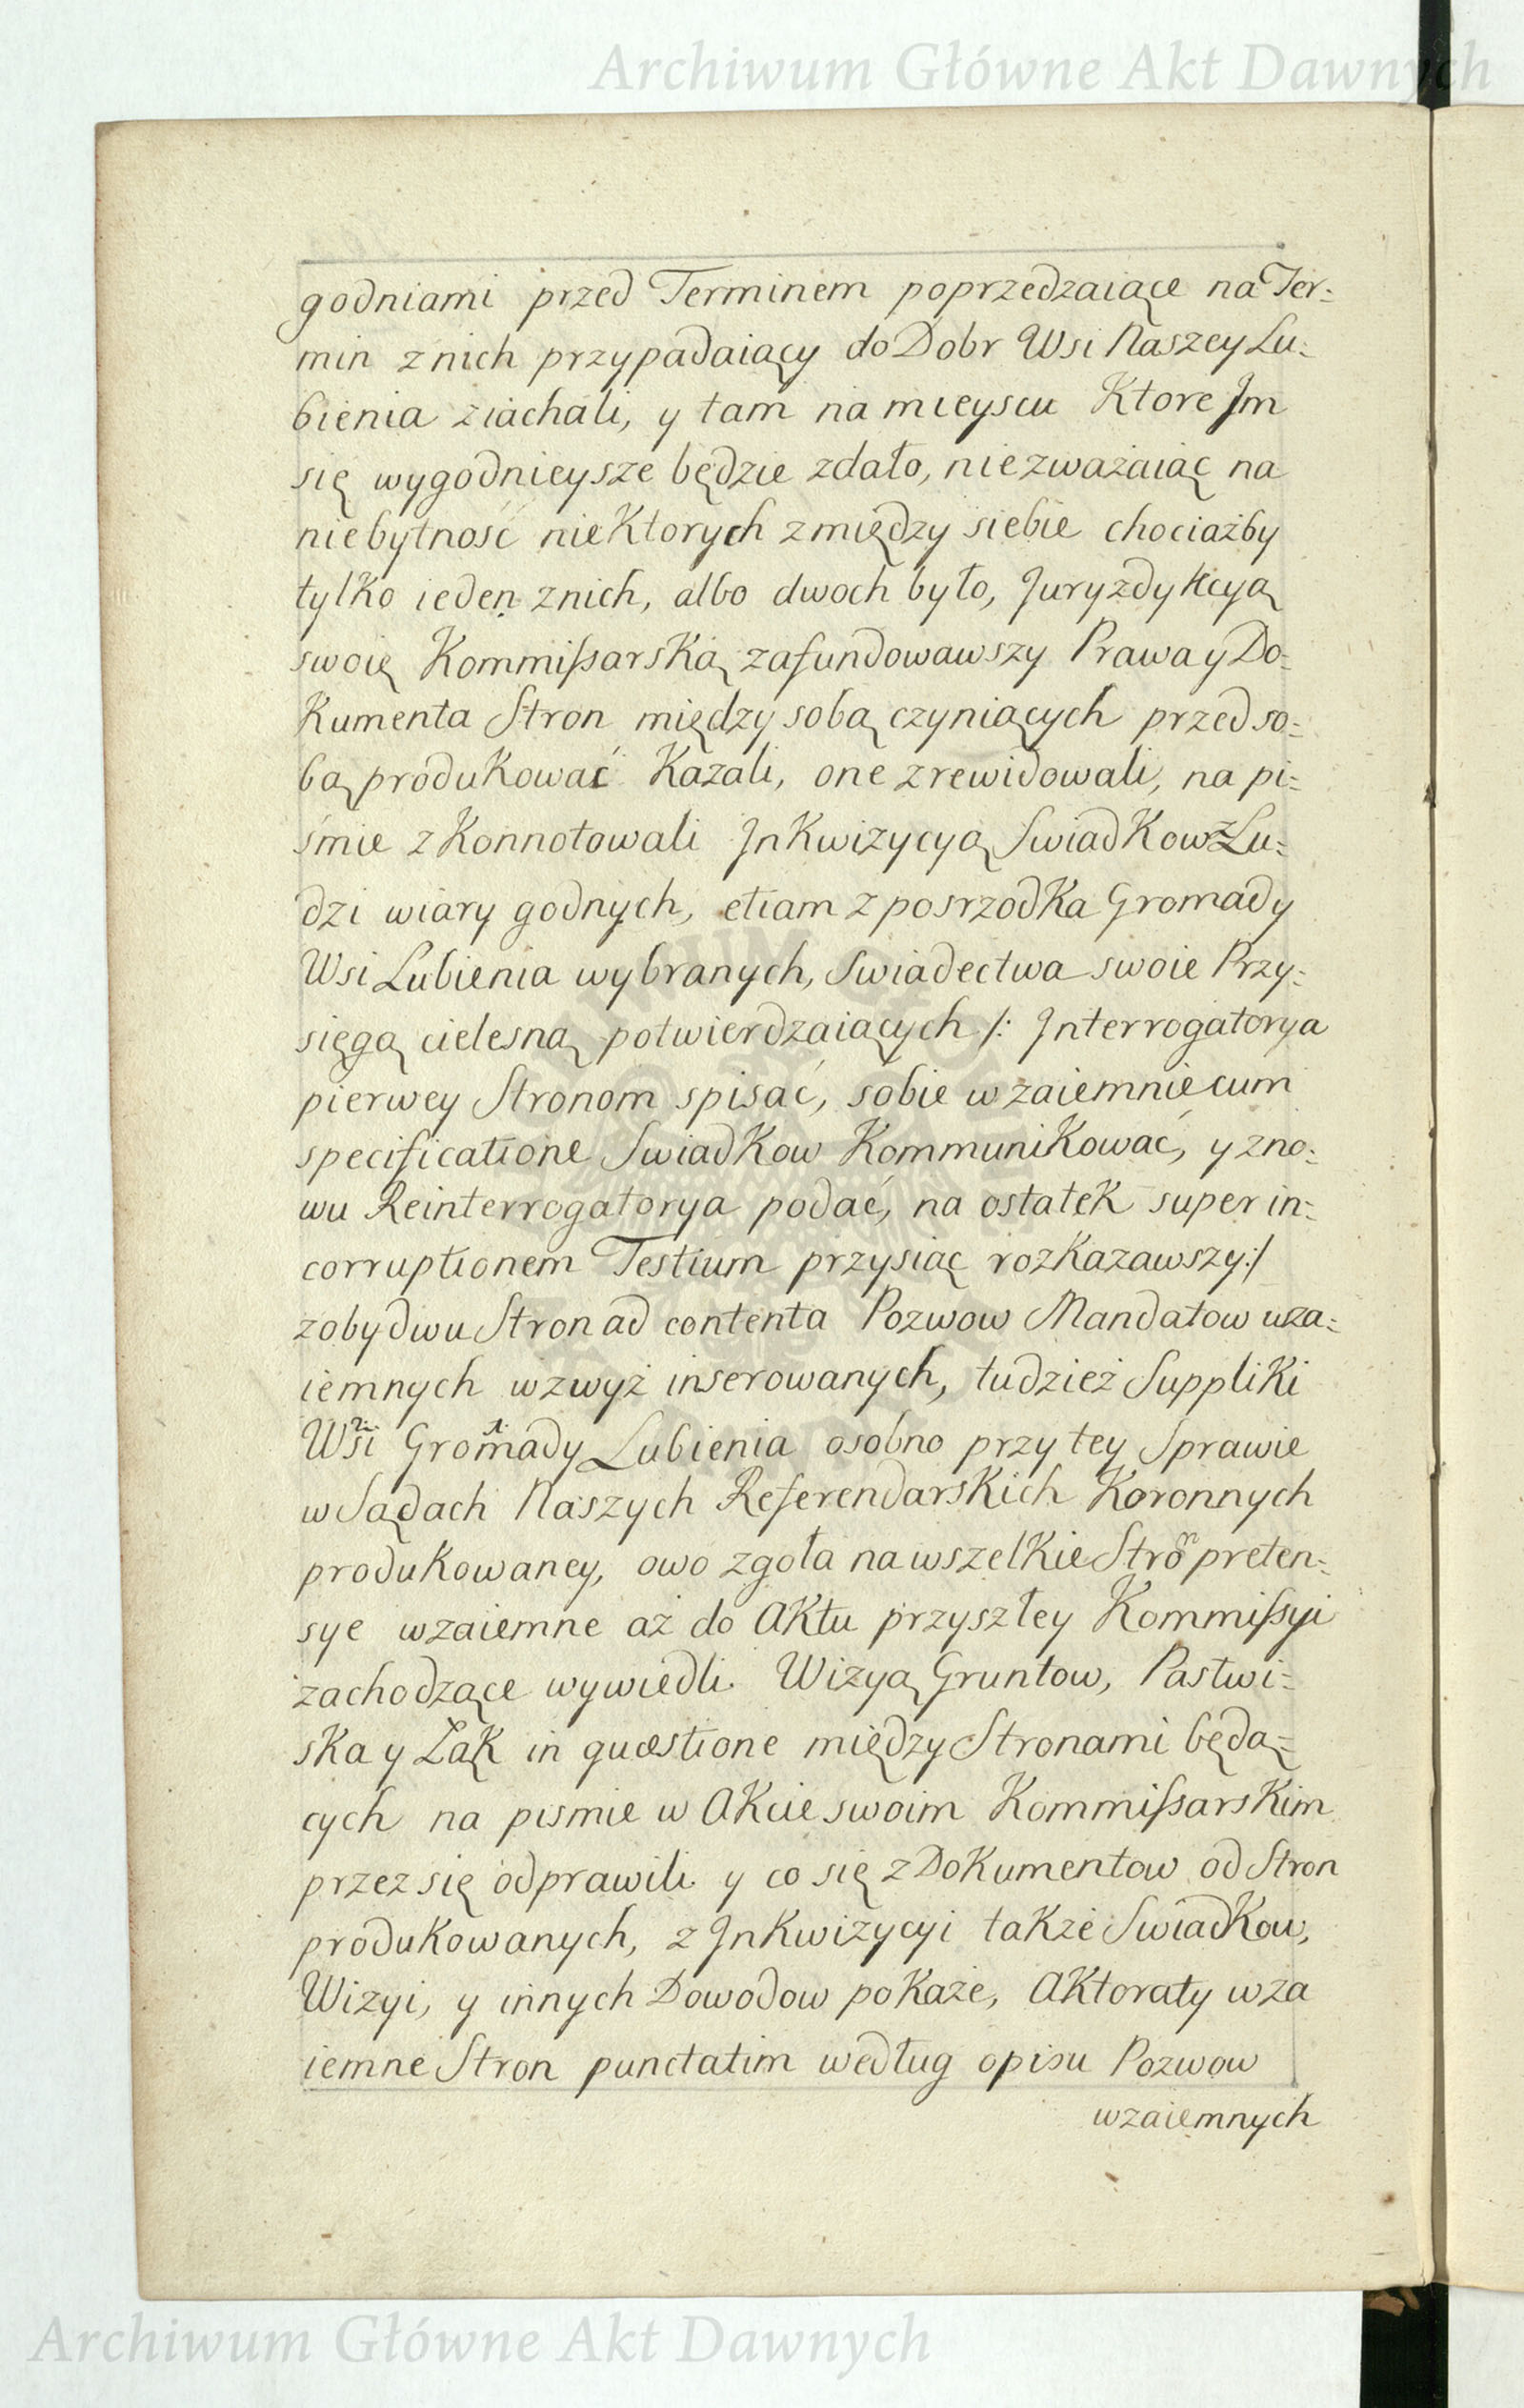 Archiwum Główne Akt Dawnych
godniami przed Terminem poprzedzaiące na Ter:
min z nich przypadaiący do Dobr Wsi Naszey Lu:
bienia ziachali, y tam na mieyscu Ktore Jm
się wygodnieysze będzie zdało, niezważaiąc na
niebytność nieKtorych zmiędzy siebie chociażby
tylko ieden znich, albo dwoch było, Juryzdykcyą
swoię Kommißarską zafundowawszy Prawa y Do:
Kumenta Stron między sobą czyniących przed so:
bą produkować Kazali, one zrewidowali, na pi:
śmie zKonnotowali JnKwizycyą SwiadKow z Lu:
dzi wiary godnych, etiam z posrzodKa Gromady
Wsi Lubienia wybranych, Swiadectwa swoie Przy:
sięgą cielesną potwierdzaiących /: Jnterrogatorya
pierwey Stronom spisać, sobie wzaiemnie cum
specificatione SwiadKow KommuniKować, y zno:
wu Reinterrogatorya podać, na ostateK super in:
corruptionem Testium przysiąc rozKazawszy :/
zobydwu Stron ad contenta Pozwow Mandatow wza:
iemnych wzwyż inserowanych, tudzież SuppliKi
Wsi Gromady Lubienia osobno przy tey Sprawie
w Sądach Naszych ReferendarsKich Koronnych
produKowaney, owo zgoła na wszelKie Stron preten:
sye wzaiemne aż do AKtu przyszłey Kommißyi
zachodzące wywiedli. Wizyą Gruntow, Pastwi:
sKa y ŁąK in quæstione między Stronami będą:
cych na pismie w AKcie swoim KommißarsKim
przez się odprawili y co się z DoKumentow od Stron
produKowanych, z JnKwizycyi taKże SwiadKow,
Wizyi, y innych Dowodow poKaże, AKtoraty wza
iemne Stron punctatim według opisu Pozwow
wzaiemnych
Archiwum Główne Akt Dawnych